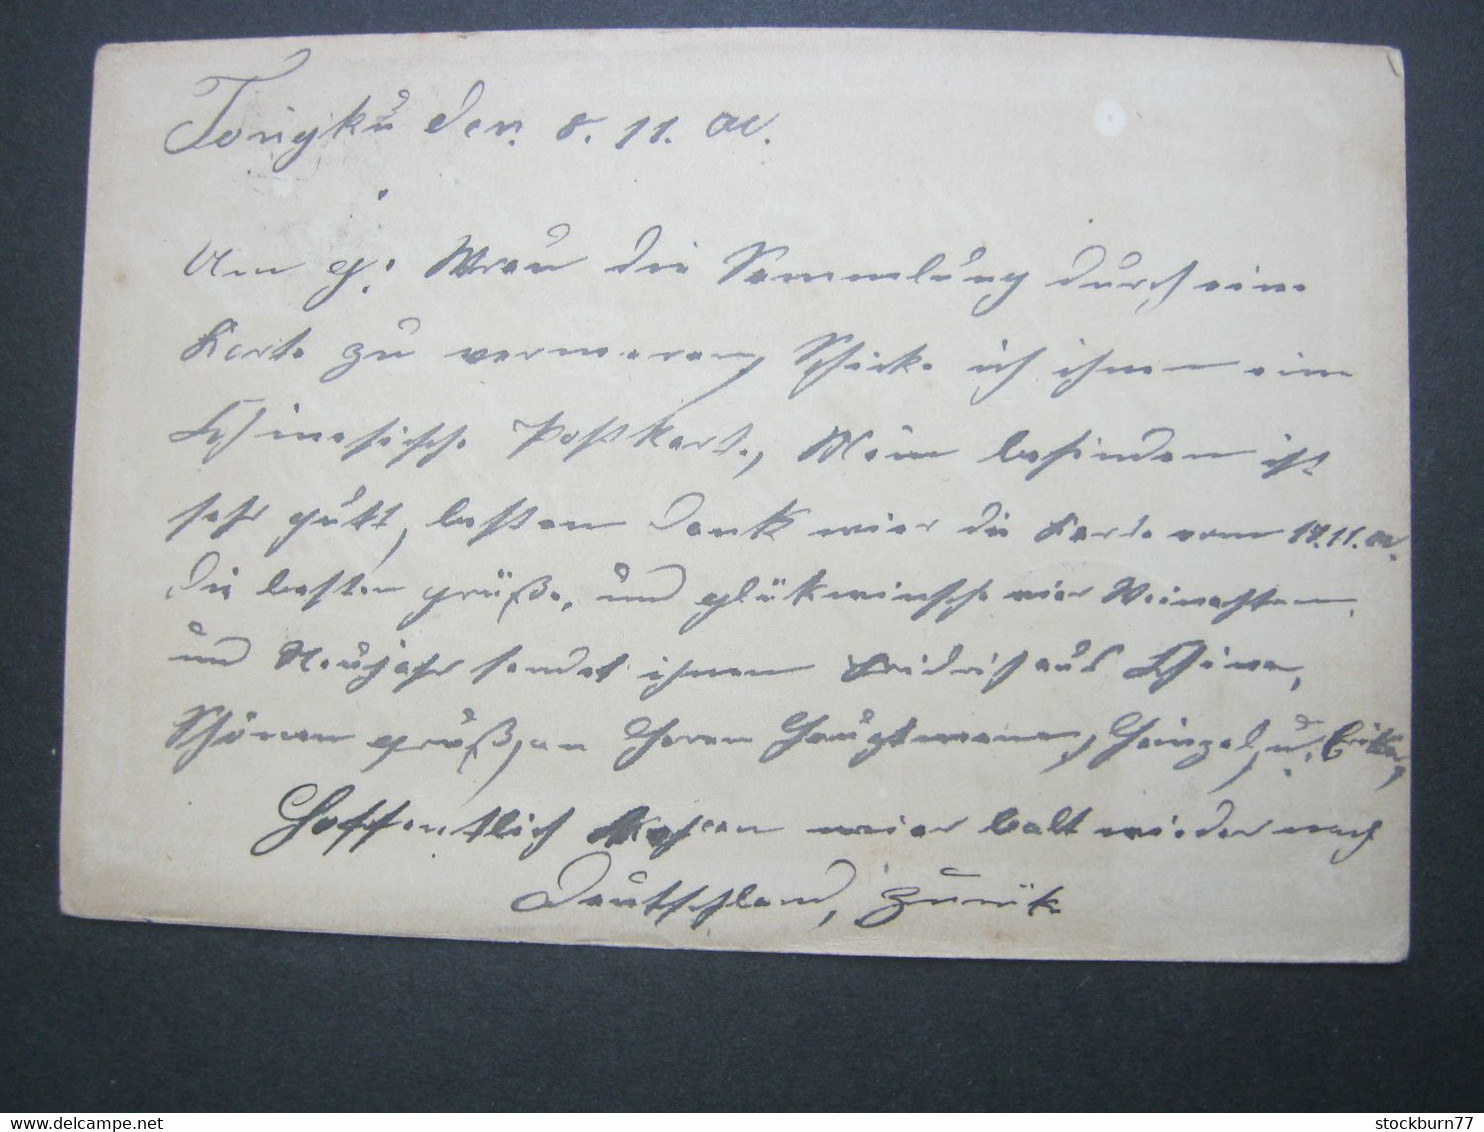 Tongku den 8. 11. 00.
Um g: Wrau die Sammlung durch eine
Karte zu vermeeren, Schicke ich ihnen eine
Chinesische Postkarte, Mein befinden ist
sehr gutt, besten Dank vier die Karte vom 17.11.00.
Die besten grüße, und glükwinsche vier Weinachten
und Neujahr sendet ihnen Fridrich aus China,
Schönen gruß, an Herrn Hauptmann, Heinzel, u. Erika,
Hoffentlich kehren wier balt wieder nach
Deutschland, zurük
stockburn77